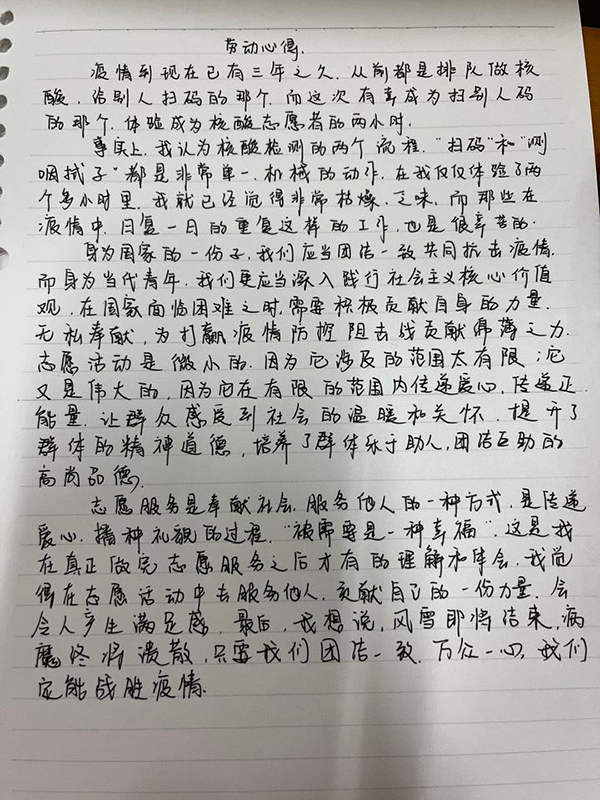 劳动心得.
疫情到现在已有三年之久.从前都是排队做核
酸,给别人扫码的那个.而这次有幸成为扫别人码
的那个.体验成为核酸志愿者的两小时.
事实上,我认为核酸检测的两个流程."扫码"和"测
咽拭子"都是非常单一.机械的动作.在我仅仅体验了两
个多小时里.我就已经觉得非常枯燥.乏味.而那些在
疫情中.日复一日的重复这样的工作,也是很辛苦的.
身为国家的一份子,我们应当团结一致共同抗击疫情.
而身为当代青年.我们更应当深入践行社会主义核心价值
观,在国家面临困难之时,需要积极贡献自身的力量.
无私奉献,为打赢疫情防控阻击战贡献绵薄之力.
志愿活动是微小的.因为它涉及的范围太有限;它
又是伟大的,因为它在有限的范围内传递爱心,传递正
能量.让群众感受到社会的温暖和关怀.提升了
群体的精神道德,培养了群体乐于助人,团结互助的
高尚品德.
志愿服务是奉献社会.服务他人的一种方式,是传递
爱心.播种礼貌的过程."被需要是一种幸福".这是我
在真正做完志愿服务之后才有的理解和体会.我觉
得在志愿活动中去服务他人.贡献自己的一份力量.会
令人产生满足感.最后,我想说,风雪即将结束,病
魔终将溃散,只要我们团结一致.万众一心,我们
定能战胜疫情.